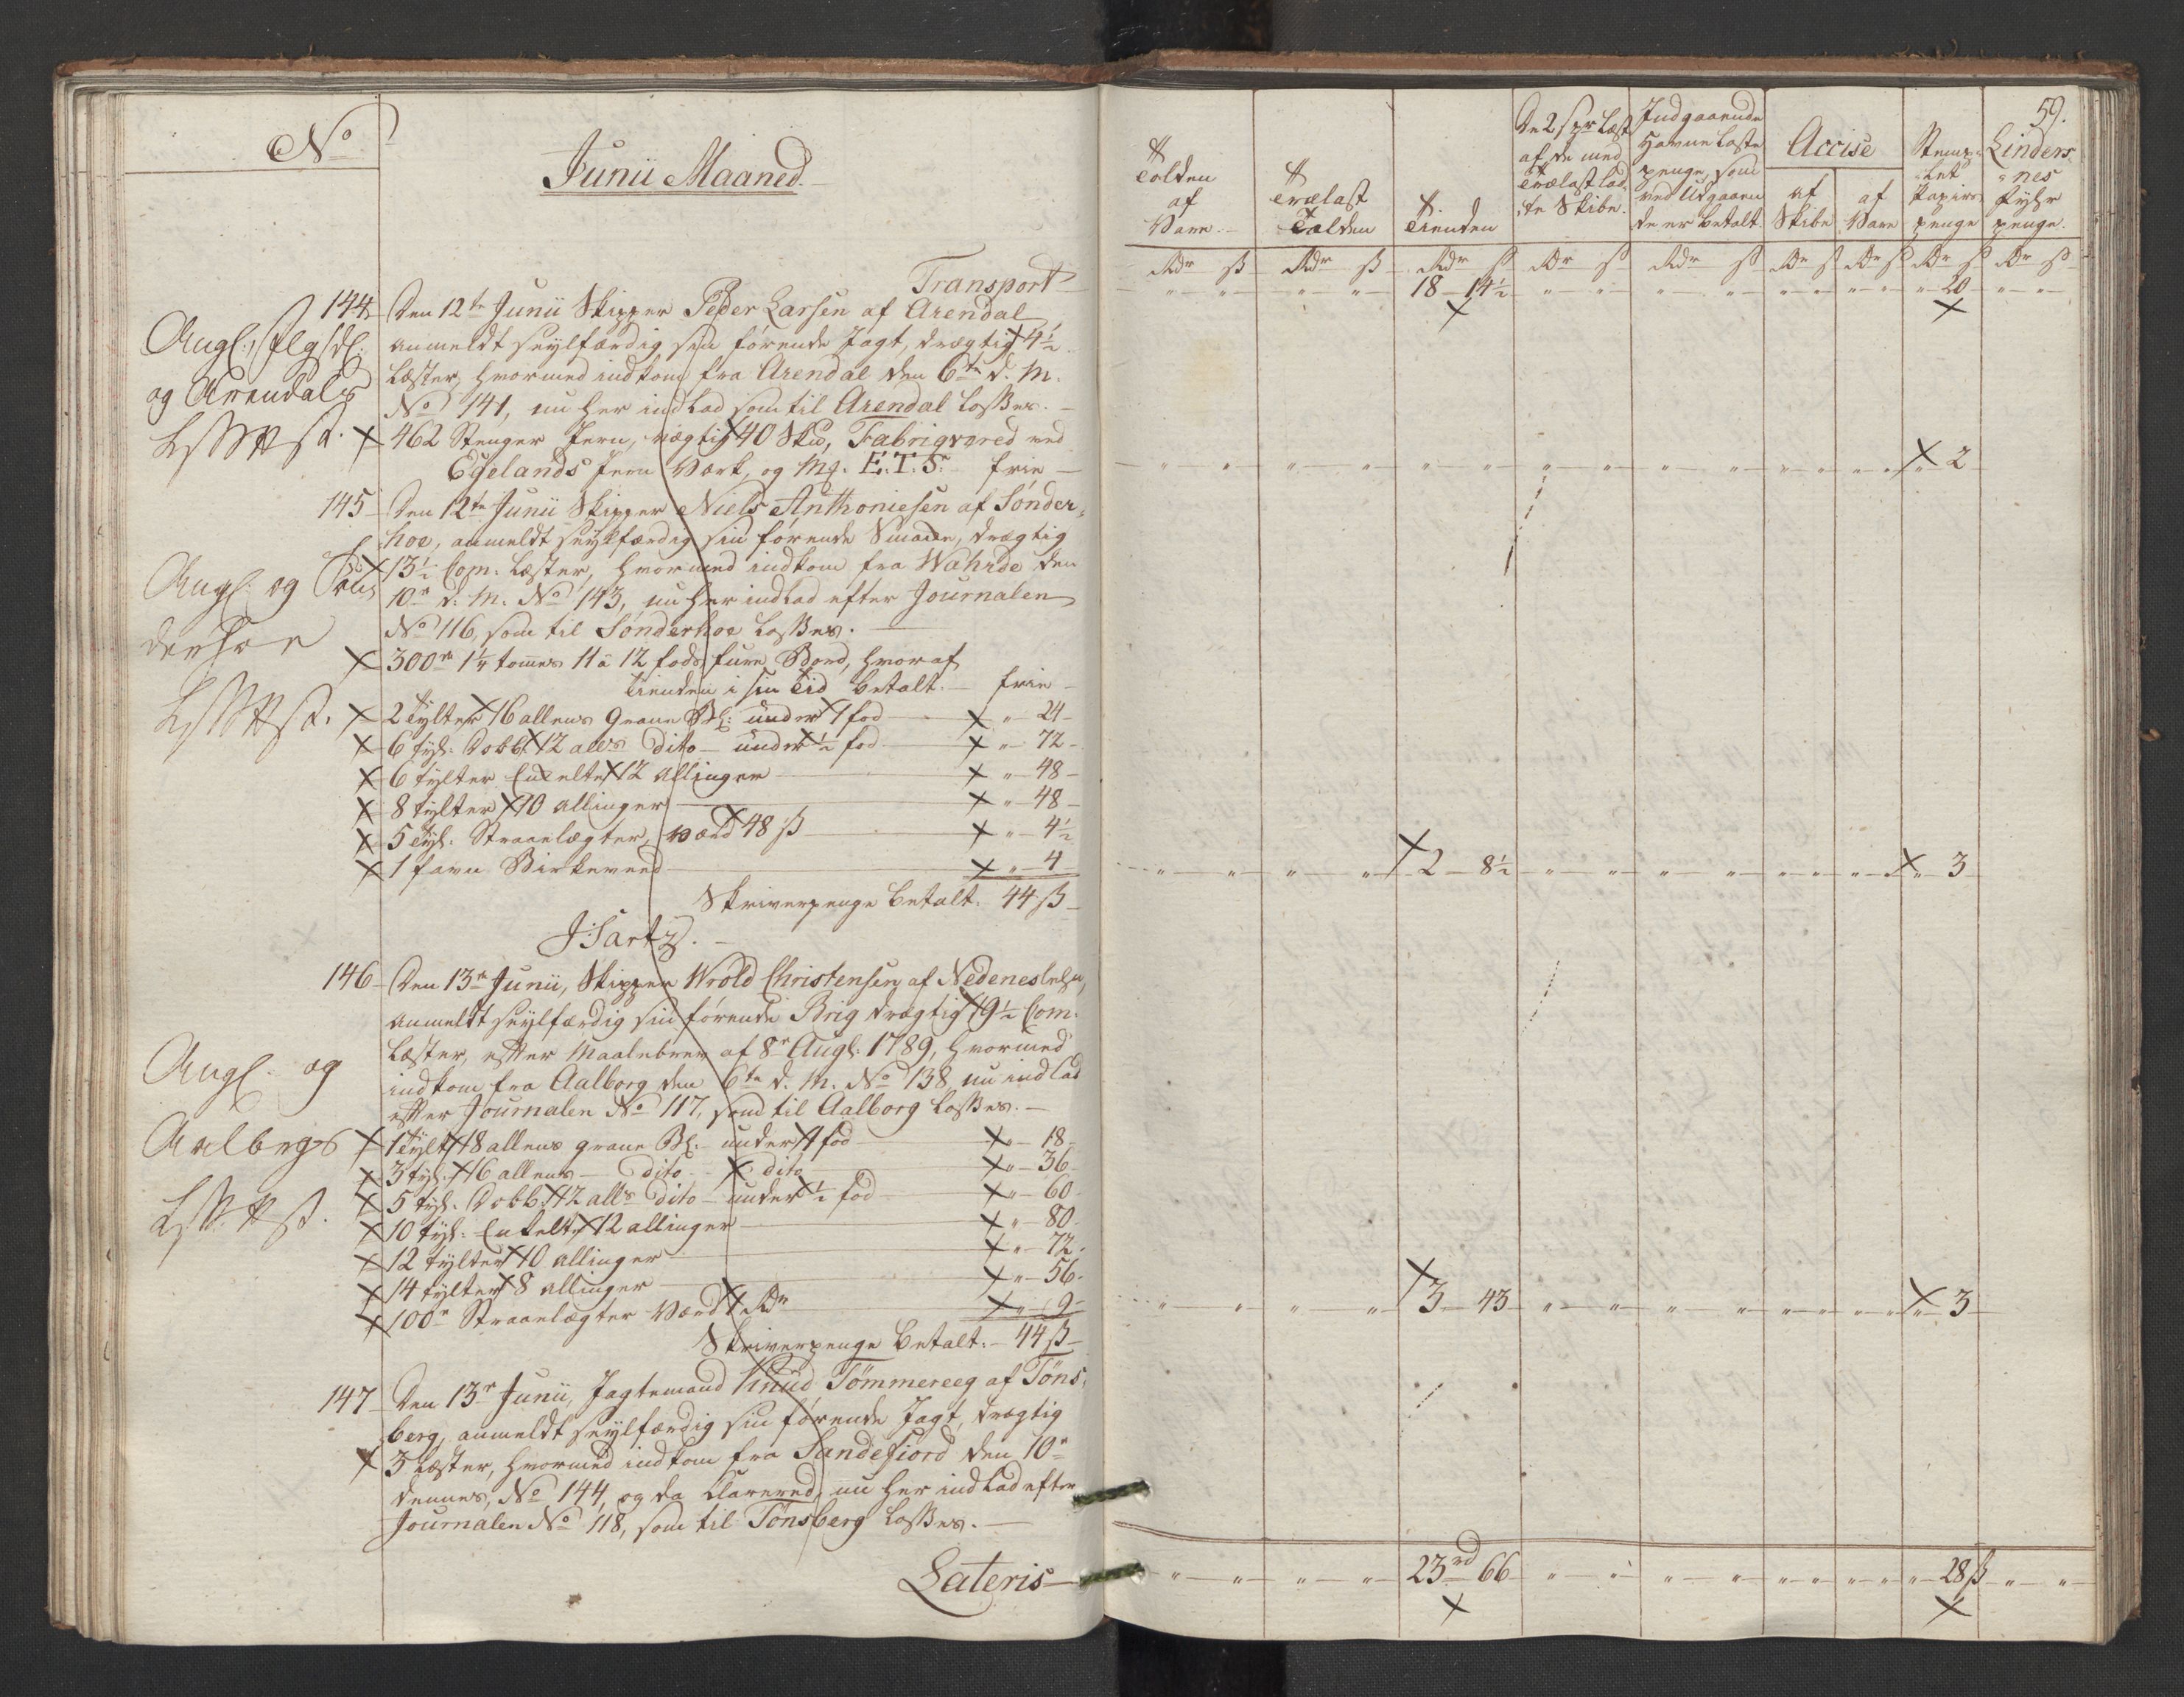 No
Junii Maaned.
Transport
144 Den 12te Junii Skipper Peder Larsen af Arendal
anmeldt seylfærdig sin førende Jagt, drægtig 4½
Læster, hvormed indkom fra Arendal den 6te d. M.
No 141, nu her indlad som til Arendal losses.
462 Stenger Jern, vægtig 40 Skd, Fabriqvered ved
Egelands Jern Værk, og Mq. E.T.S. frie
og Arendals
145 Den 12te Junii Skipper Niels Anthoniesen af Sønder-
hoe, anmeldt seylfærdig sin førende Smakke, drægtig
13½ Com. Læster, hvormed indkom fra Wahrde den
10de d. M. No 143, nu her indlad efter Journalen
No 116, som til Sønderhoe losses.
Angl. og Søn
derhoe
300de 1¼ tommes 11 à 12 fods furu Bord, hvoraf
tienden i sin tid betalt. frie
2 tylter 16 allens Grane Bl: under 1 fod " 24
6 tyl: Dobb. 12 alns dito under ½ fod " 72
6 tylter Enkelte 12 allinger " 48
8 tylter 10 allinger " 48
5 tyl: Straaelægter, værd 48 ß " 4½
1 favn Birkeveed " 4
Skriverpenge betalt. 44 ß
J. Hartz.
146 Den 13de Junii, Skipper Wrold Christensen af Nedenes lehn,
anmeldt seylfærdig sin førende Brig drægtig 19½ Com.
Læster, efter Maalebrev af 8de Augl: 1789, hvormed
indkom fra Aalborg den 6te d. M. No 138, nu indlad
efter Journalen No 117, som til Aalborg losses.
Angl. og
Aalborgs
1 tylt 18 allens grane Bl: under 1 fod " 18
3 tyl. 16 allens dito dito " 36
5 tyl. Dobb. 12 alls dito under ½ fod " 60
10 tyl: Enkelte 12 allinger " 80
12 tylter 10 allinger " 72
14 tylter 8 allinger " 56
100de Straaelægter Værd 1 Rdr " 9
Skriverpenge betalt. 44 ß
147 Den 13de Junii, Jagtemand Knud Tömmereeg af Töns-
berg, anmeldt seylfærdig sin førende Jagt, drægtig
3 Læster, hvormed indkom fra Sandefiord den 10de
dennes, No 144, og da Clarered, nu her indlad efter
Journalen No 118, som til Tönsberg losses.
Lateris
59.
Tolden af Vare
Trælast Tolden
Tienden
De 2 spr Læst af de med Trælast ladte Skibe.
Indgaaende Havne Laste penge, som ved Udgaaende er betalt
Accise
af Skibe
af Vare
Stemplet Papiirs penge
Lindersnes fyhr penge.
Rdr ß Rdr ß Rdr ß Rdr ß Rdr ß Rdr ß Rdr ß Rdr ß Rdr ß
18 14½ " 20
" 2
2 8½ " 3
3 43 " 3
23rd 66 " 28 ß